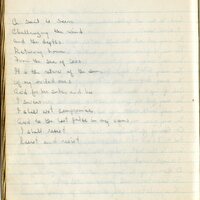 On sail is seen
Challenging the wind
and the depths
Returning home
From the sea of loss
It is the return of the sun
of my exiled ones
And for her sake and his
I swear
I shall not compromise
And to the last pulse in my veins
I shall resist
Resist and resist